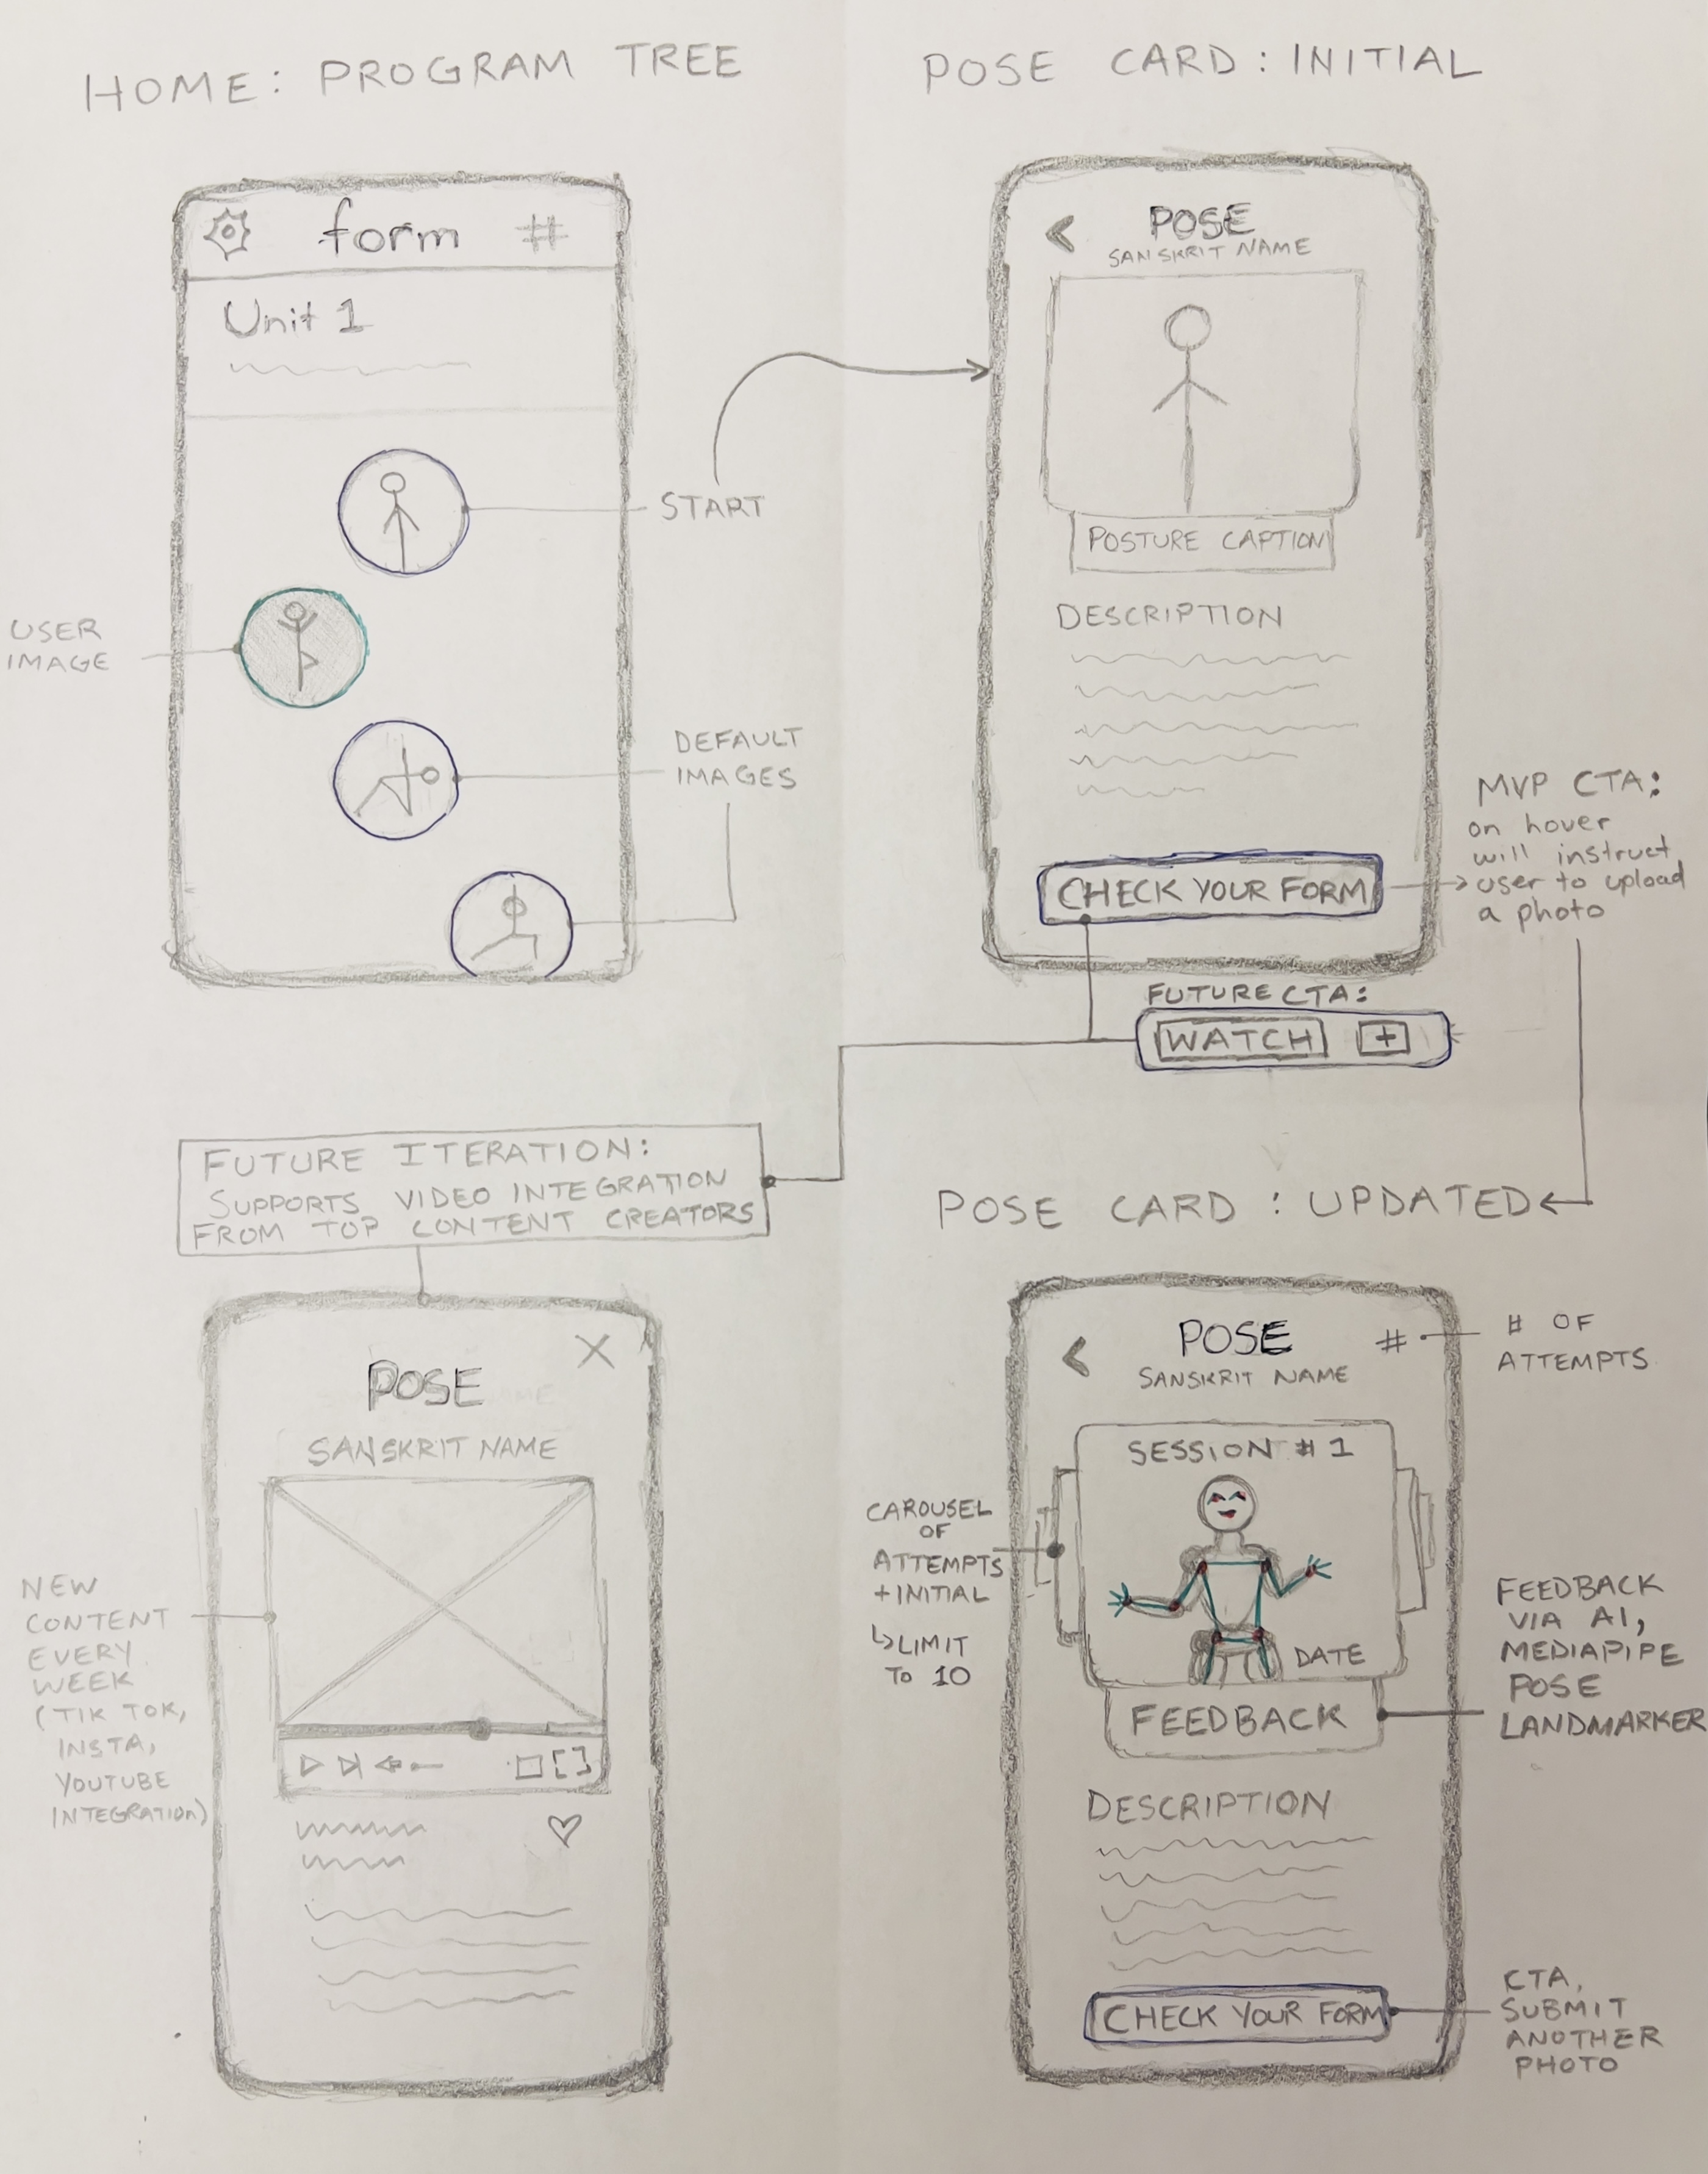 HOME: PROGRAM TREE
form #
Unit 1
START
USER
IMAGE
DEFAULT
IMAGES
POSE CARD: INITIAL
POSE
SANSKRIT NAME
POSTURE CAPTION
DESCRIPTION
CHECK YOUR FORM
MVP CTA:
on hover
will instruct
user to upload
a photo
FUTURE CTA:
WATCH +
FUTURE ITERATION:
SUPPORTS VIDEO INTEGRATION
FROM TOP CONTENT CREATORS
POSE
SANSKRIT NAME
NEW
CONTENT
EVERY
WEEK
(TIK TOK,
INSTA,
YOUTUBE
INTEGRATION)
POSE CARD : UPDATED
POSE #
SANSKRIT NAME
# OF
ATTEMPTS
SESSION #1
DATE
CAROUSEL
OF
ATTEMPTS
+INITIAL
LIMIT
TO 10
FEEDBACK
FEEDBACK
VIA AI,
MEDIAPIPE
POSE
LANDMARKER
DESCRIPTION
CHECK YOUR FORM
CTA,
SUBMIT
ANOTHER
PHOTO